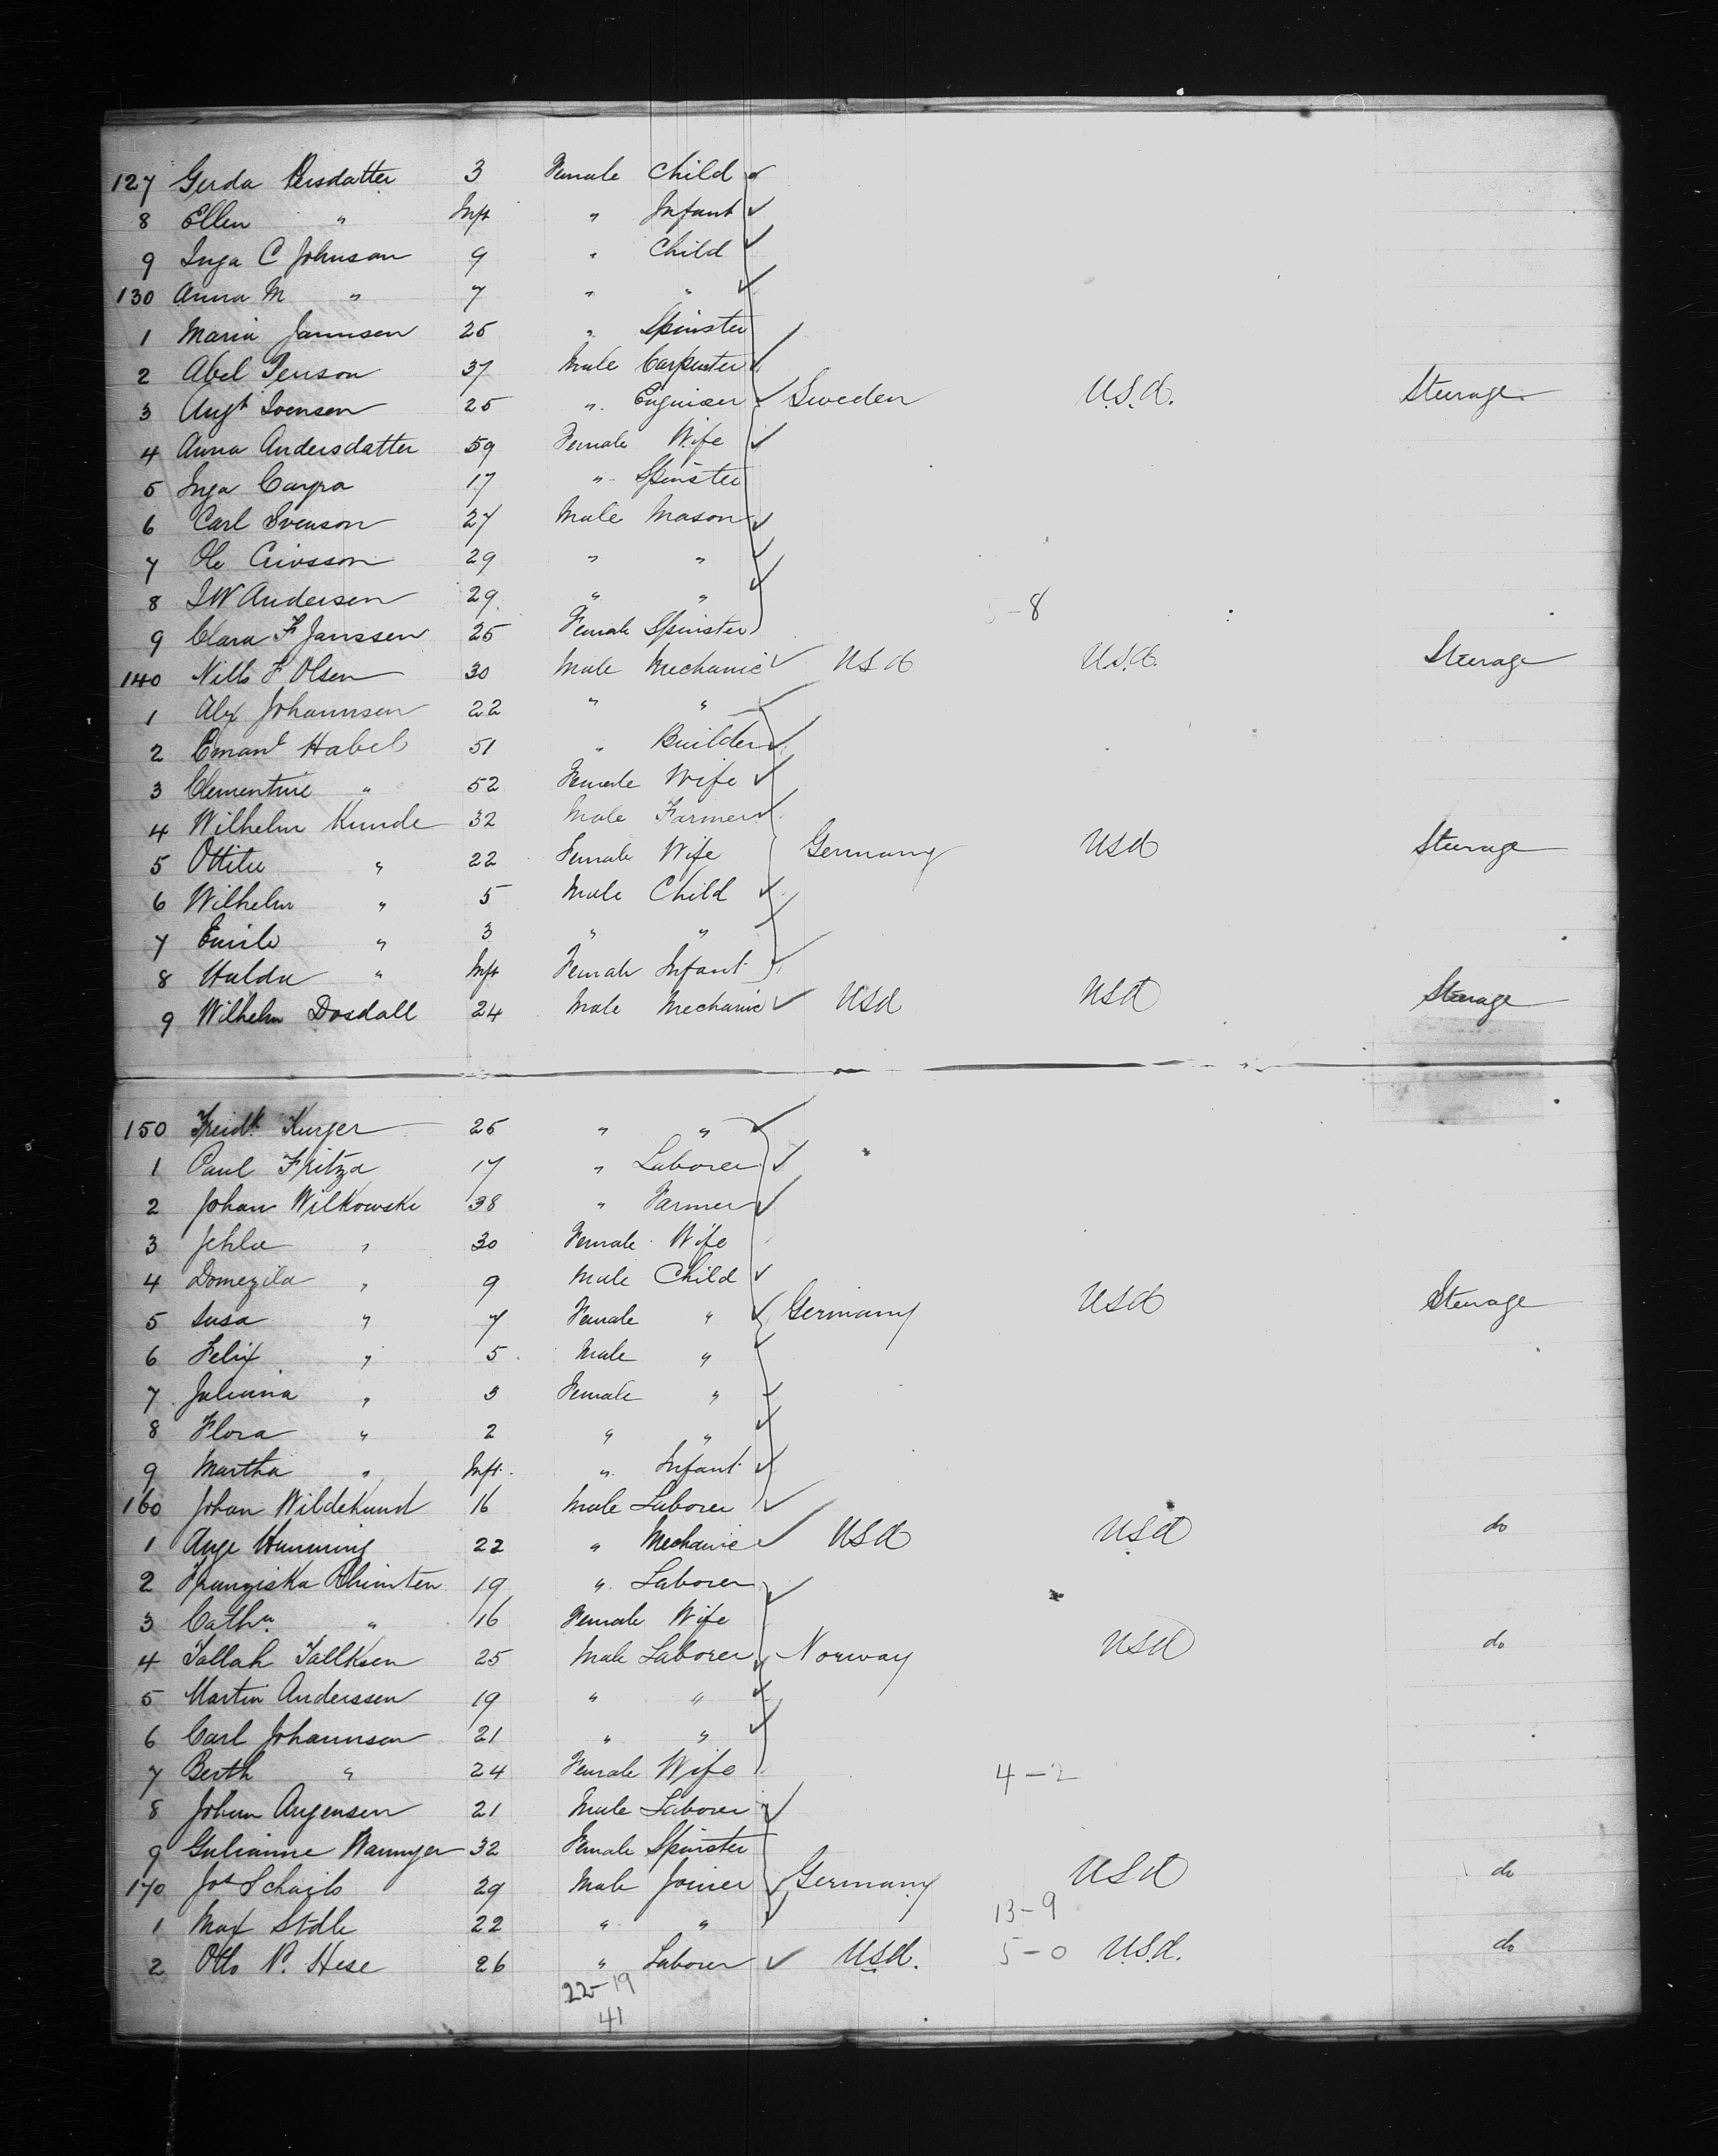 127 Gerda Persdatter 3 Female Child
8 Ellen " Inft " Infant
9 Inga C Johnson 9 " Child
130 Anna M " 7 " "
1 Maria Jannsen 25 " Spinster
2 Abel Person 37 Male Carpenter
3 Augt Svensen 25 " Engineer Sweden U.S.A. Steerage
4 Anna Andersdatter 59 Female Wife
5 Inga 17 " Spinster
6 Carl Svenson 27 Male Mason
7 Ole 29 " "
8 Andersen 29 " "
-8
9 Clara F Janssen 25 Female Spinster
140 Nills F Olsen 30 Male Mechanic USA U.S.A. Steerage
1 Alex Johannsen 22 " "
2 Emanl Habel 51 " Builder
3 Clementine " 52 Female Wife
4 Wilhelm Kunde 32 Male Farmer
5 Ottilie " 22 Female Wife Germany USA Steerage
6 Wilhelm " 5 Male Child
7 Emile " 3 " "
8 Hulda " Inft Female Infant
9 Wilhelm Dosdall 24 Male Mechanic USA USA Steerage
150 Freidk Kurger 25 " "
1 Paul Fritza 17 " Laborer
2 Johan Wilkowske 38 " Farmer
3 " 30 Female Wife
4 Domezila " 9 Male Child
5 Susa " 7 Female " Germany USA Steerage
6 Felix " 5 Male "
7 Juliana " 3 Female "
8 Flora " 2 " "
9 Martha " Inft. " Infant
160 Johan Wildekund 16 Male Laborer
1 Auge Hunning 22 " Mechanic USA USA do
2 Franziska 19 " Laborer
3 Cathn. " 16 Female Wife
4 Tallak Tallksen 25 Male Laborer Norway USA do
5 Martin Anderssen 19 " "
6 Carl Johannsen 21 " "
7 Berth " 24 Female Wife
4-2
8 Johan Argensen 21 Male Laborer
9 Gulianne 32 Female Spinster
170 Jos 29 Male Joiner Germany USA do
13-9
1 Max Stolle 22 " "
2 Otto P. Hese 26 " Laborer U.S.A. 5-0 U.S.A. do
22-19
41